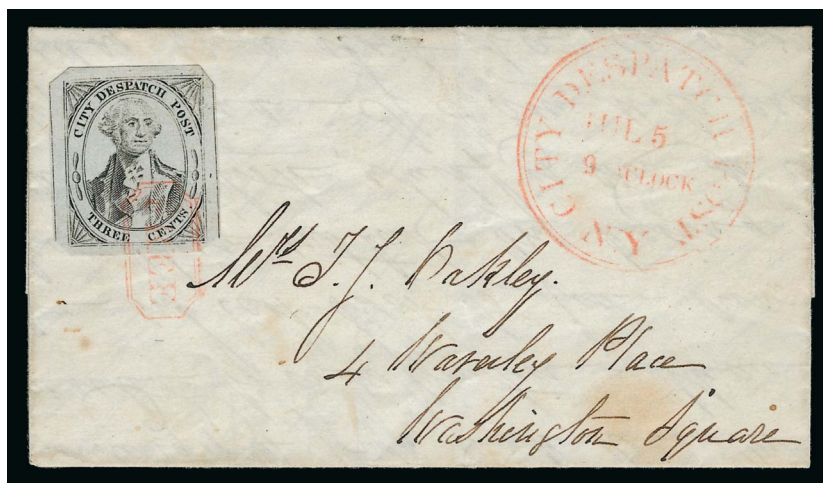 CITY DESPATCH POST
THREE CENTS.
CITY DESPATCH POST
N.Y.
JUL 5
9 O'CLOCK
FREE
Mrs T. J. Oakley.
4 Waverley Place
Washington Square